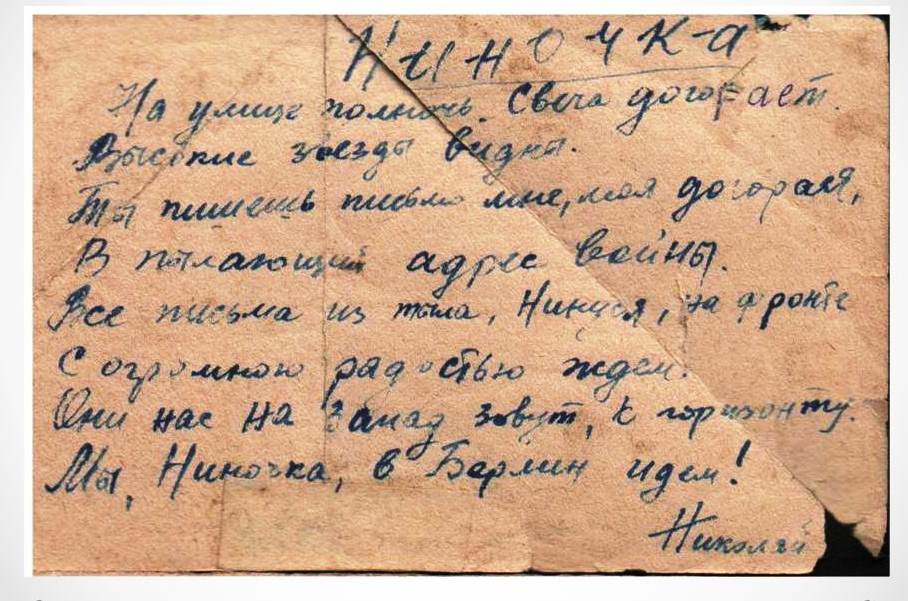 Ниночка
На улице полночь. Свеча догорает.
Высокие звезды видны.
Ты пишешь письмо мне, моя дорогая,
В пылающий адрес войны.
Все письма из тыла, Нинуся, на фронте
С огромною радостью ждем.
Они нас на запад зовут, к горизонту.
Мы, Ниночка, в Берлин идем!
Николай